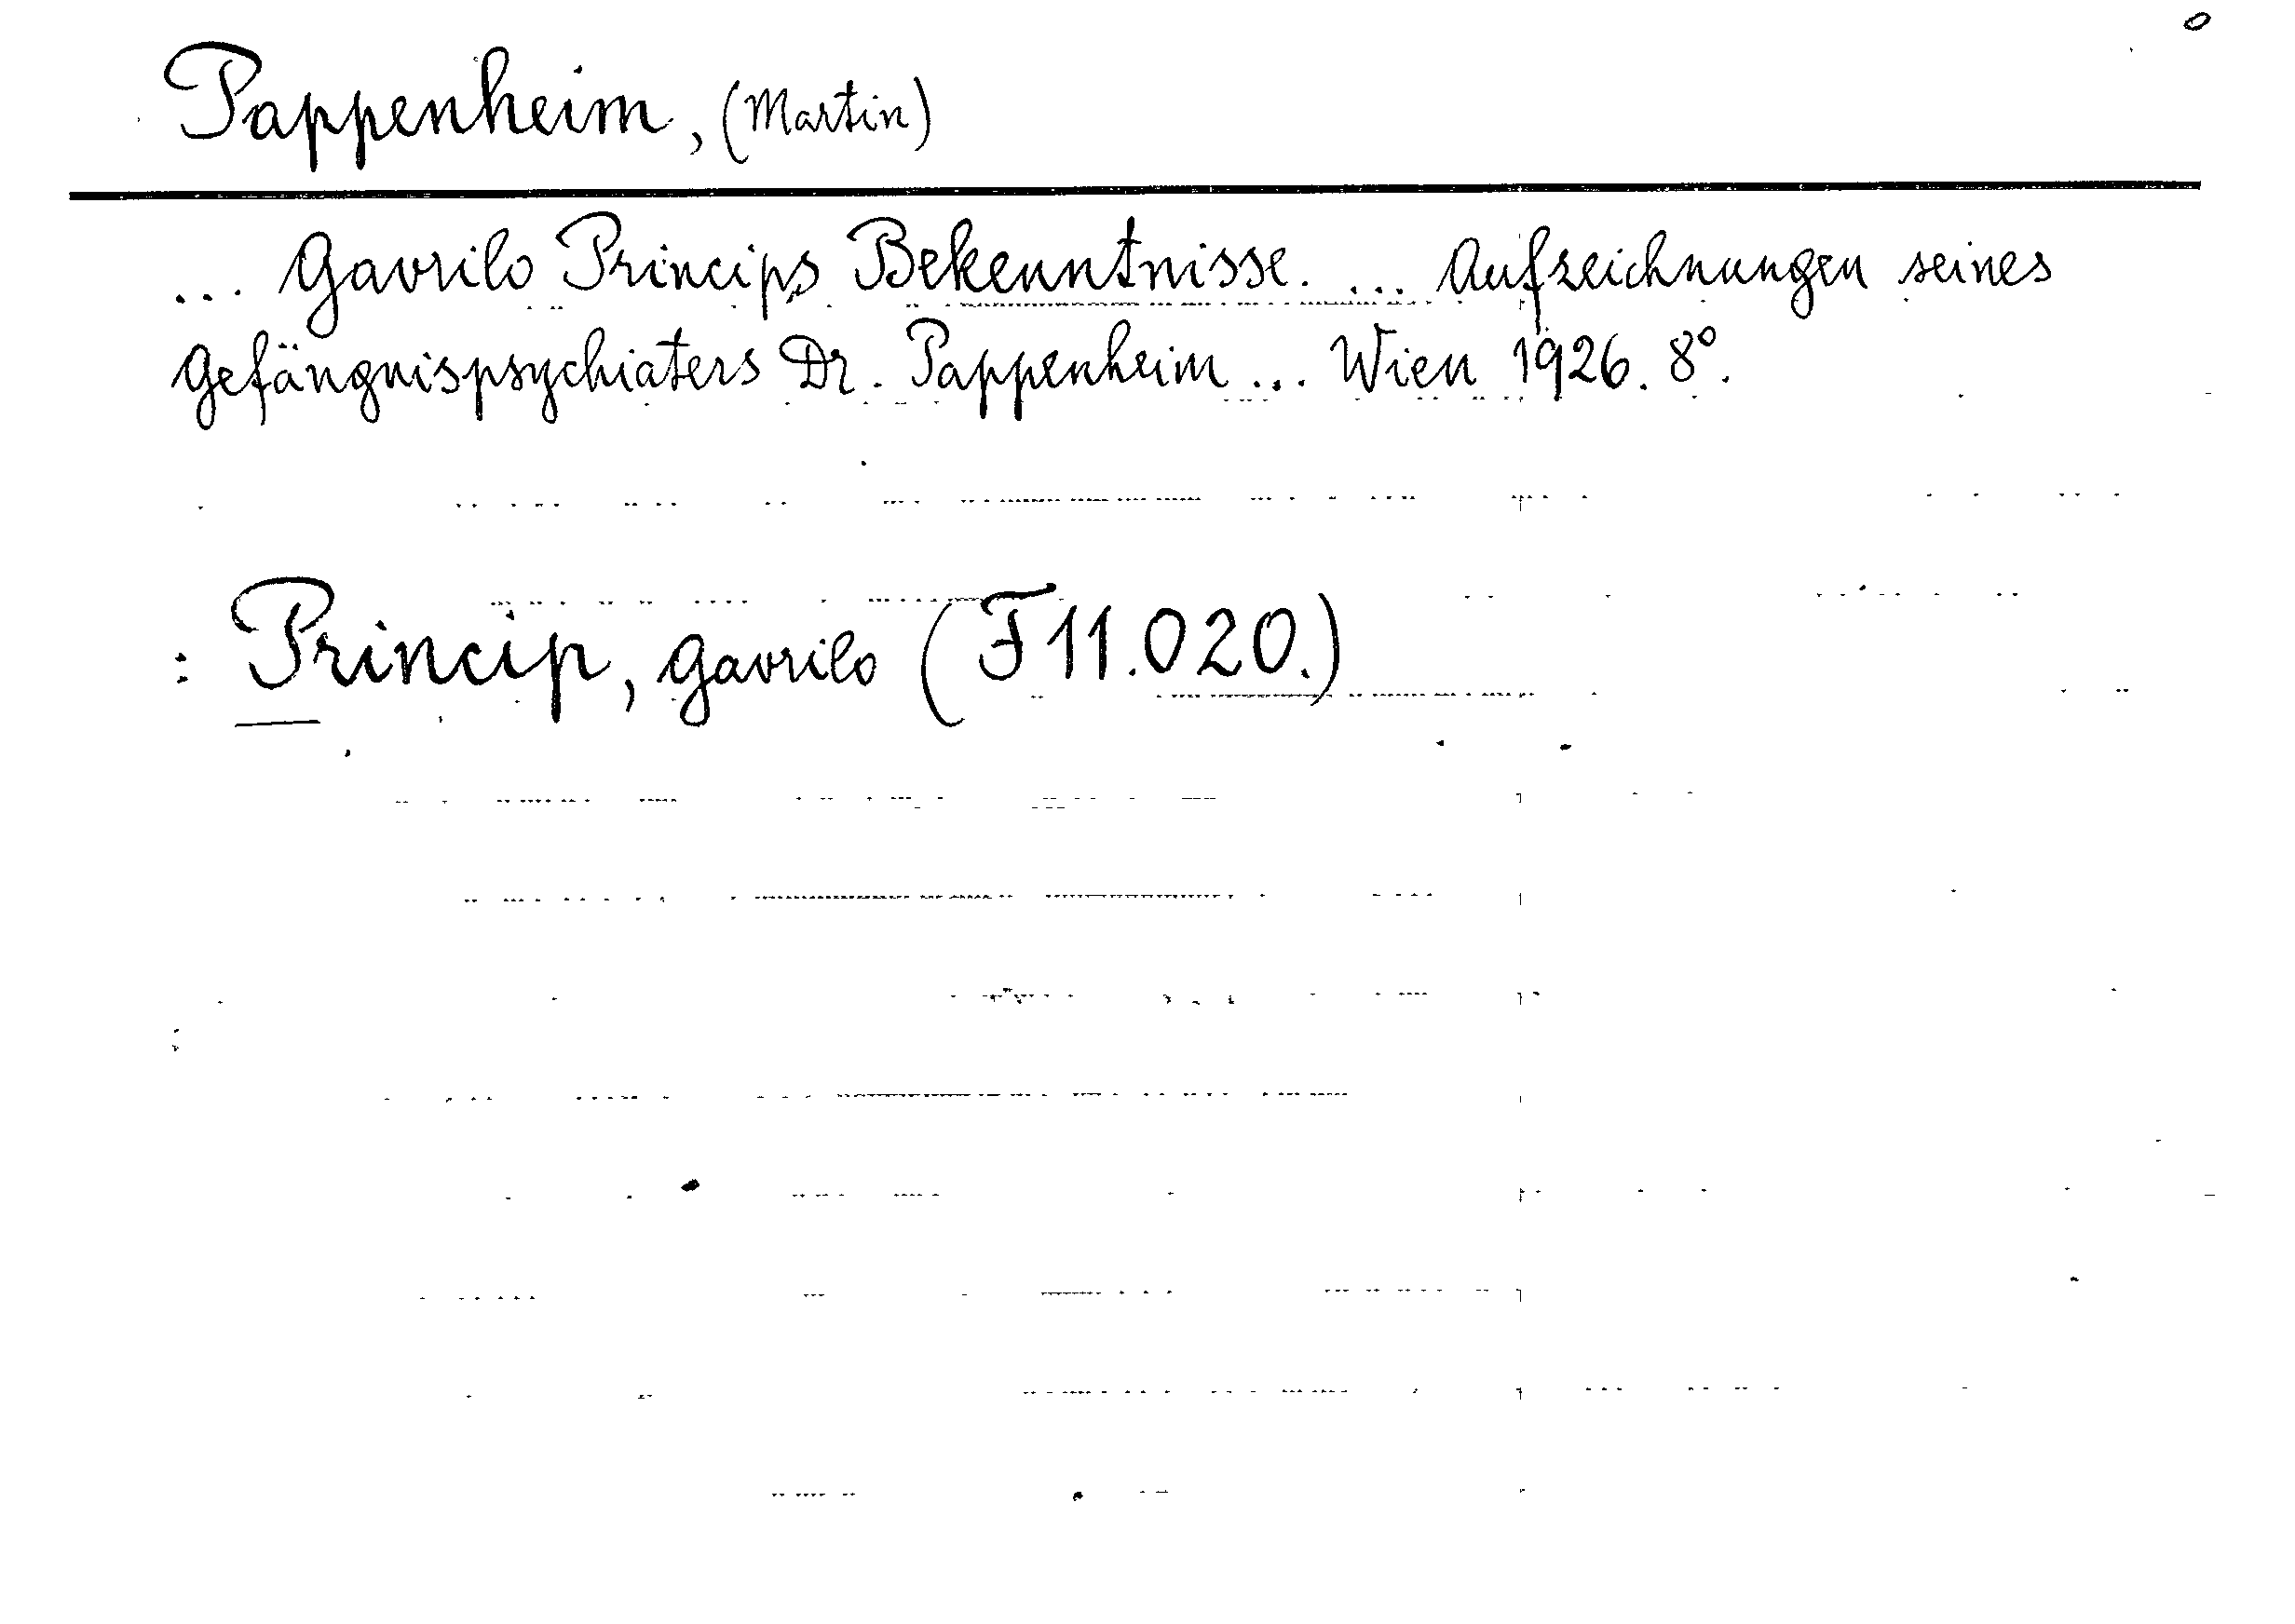 0
Pappenheim, (Martin)
... Gavrilo Princips Bekenntnisse. ... Aufzeichnungen seines
Gefängnispsychiaters Dr. Pappenheim ... Wien 1926. 8°.
: Princip, Gavrilo (F 11.020.)